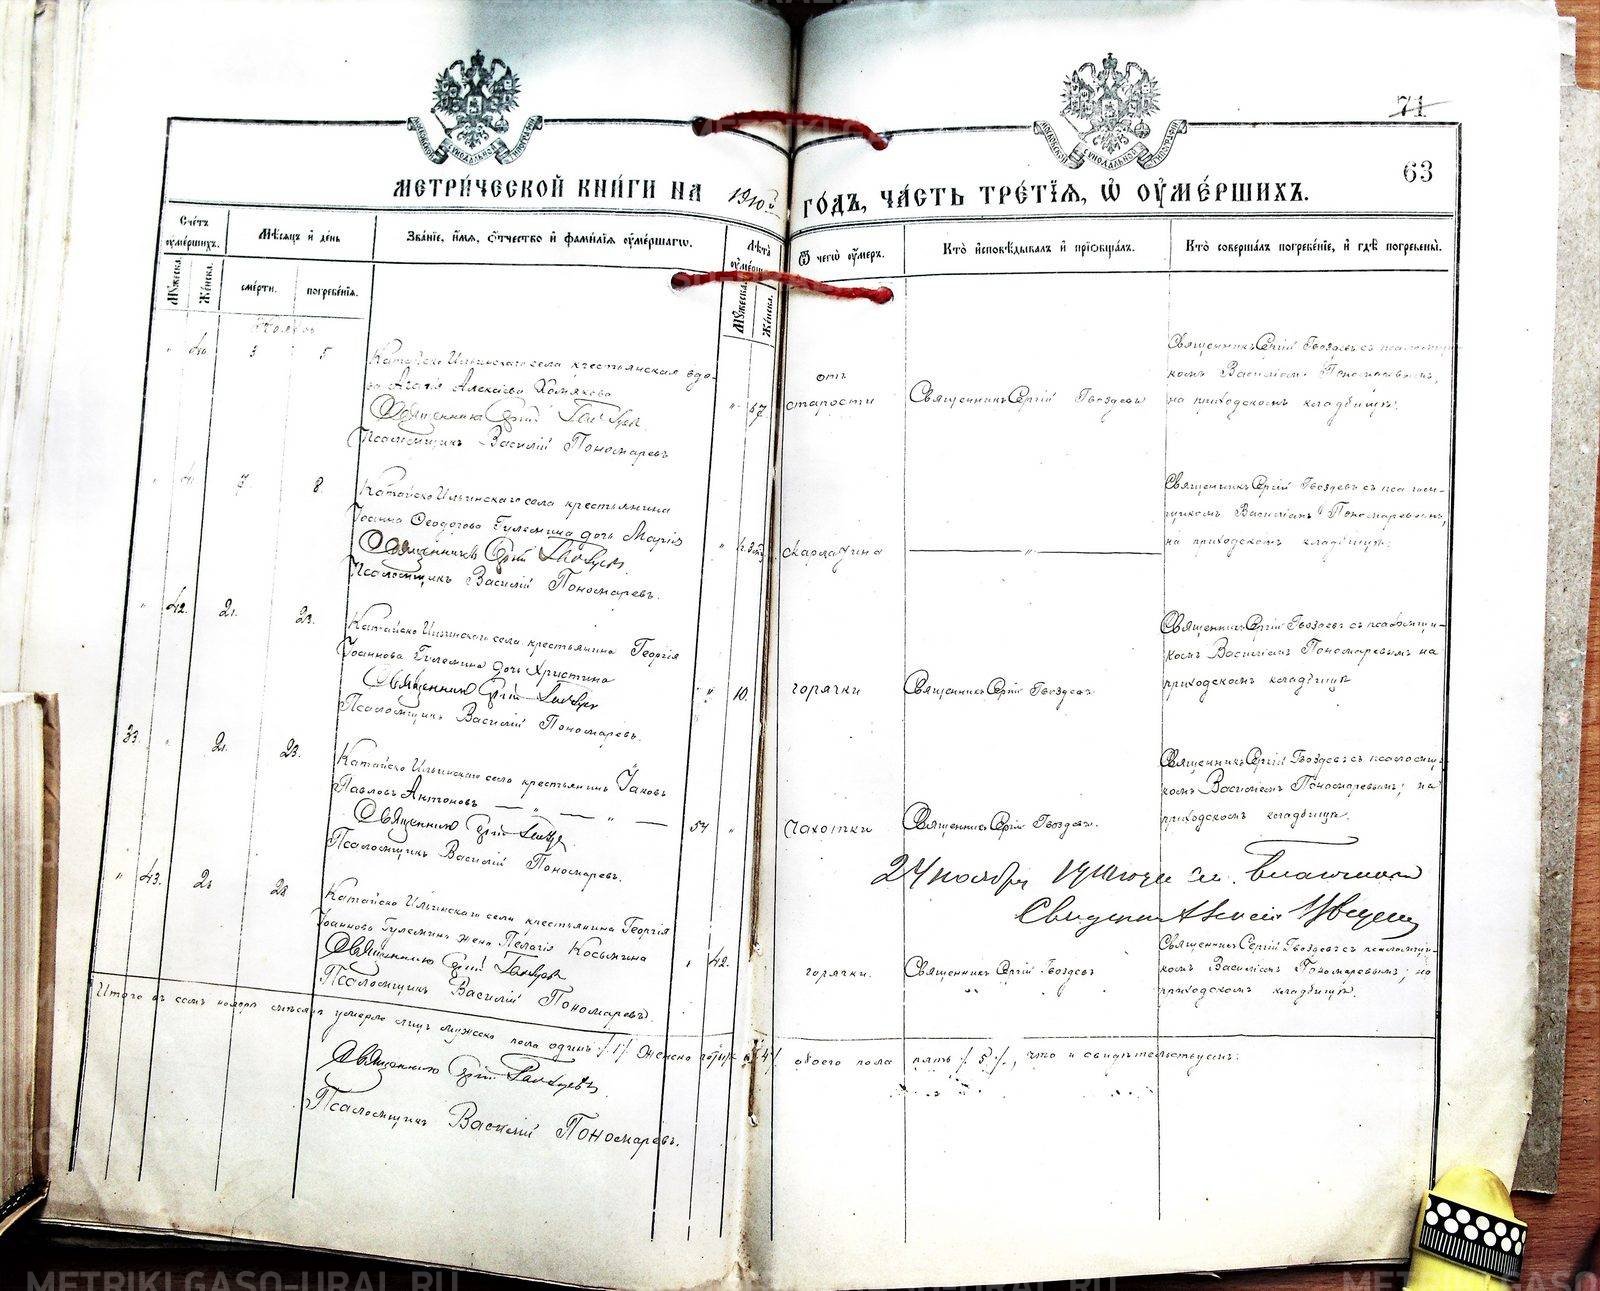 71
63
МЕТРИ́ЧЕСКОЙ КНИ́ГИ НА 1910й ГО́ДЪ, ЧА́СТЬ ТРЕ́ТІЯ, Ѡ ОУМЕ́РШИХЪ.
Сче́тъ оуме́ршихъ.
Му́жеска.
Же́нска.
Мѣ́сяцъ и де́нь
сме́рти.
погребе́нія.
Зва́ніе, и́мя, о́тчество и фами́лія оуме́ршагѡ.
Лѣ́та оуме́рш
Му́жеска.
Же́нска.
Ѿ чегѡ̀ оу́меръ.
Кто̀ исповѣ́дывалъ и пріѡбща́лъ.
Кто̀ соверша́лъ погребе́ніе, и гдѣ̀ погребены̀.
Ноябрь
" 40 3 5
Катайско Ильинскаго села крестьянская вдо-
ва Агапія Алексѣева Хомякова
Священникъ Сергій Гвоздевъ
Псаломщикъ Василій Пономаревъ
" 57
отъ
старости
Священникъ Сергій Гвоздевъ
Священникъ Сергій Гвоздевъ съ псаломщи
комъ Василіемъ Пономаревымъ,
на приходскомъ кладбищѣ.
" 41 7 8.
Катайско Ильинскаго села крестьянина
Іоанна Ѳеодорова Гулемина дочь Марія
Священникъ Сергій Гвоздевъ
Псаломщикъ Василій Пономаревъ.
скарлатина
"
Священникъ Сергій Гвоздевъ съ псалом-
щикомъ Василіемъ Пономаревымъ,
на приходскомъ кладбищѣ.
" 42. 21. 23.
Катайско Ильинскаго села крестьянина Георгія
Іоаннова Гулемина дочь Христина
Священникъ Сергій Гвоздевъ
Псаломщикъ Василій Пономаревъ.
" 10.
горячки
Священникъ Сергій Гвоздевъ
Священникъ Сергій Гвоздевъ съ псаломщи-
комъ Василіемъ Пономаревымъ на
приходскомъ кладбищѣ
33. " 21. 23.
Катайско Ильинскаго села крестьянинъ Іаковъ
Павловъ Антоновъ
Священникъ Сергій Гвоздевъ
Псаломщикъ Василій Пономаревъ.
54 "
Чахотки
Священникъ Сергій Гвоздевъ.
Священникъ Сергій Гвоздевъ съ псаломщи
комъ Василіемъ Пономаревымъ, на
приходскомъ кладбищѣ.
24 ноября 1910 года
" 43. 28
Катайско Ильинскаго села крестьянина Георгія
Іоаннова Гулемина жена Пелагія Косьмина
Священникъ Сергій Гвоздевъ
Псаломщикъ Василій Пономаревъ.
" 42.
горячки.
Священникъ Сергій Гвоздевъ
Священникъ Сергій Гвоздевъ съ псаломщи-
комъ Василіемъ Пономаревымъ, на
приходскомъ кладбищѣ.
Итого въ семъ ноябрѣ мѣсяцѣ умерло лицъ мужеска пола одинъ /1/ женска четыре /4/ обоего пола пять /5/, что и свидѣтельствуемъ:
Священникъ Сергій Гвоздевъ
Псаломщикъ Василій Пономаревъ.
METRIKI.GASO-URAL.RU